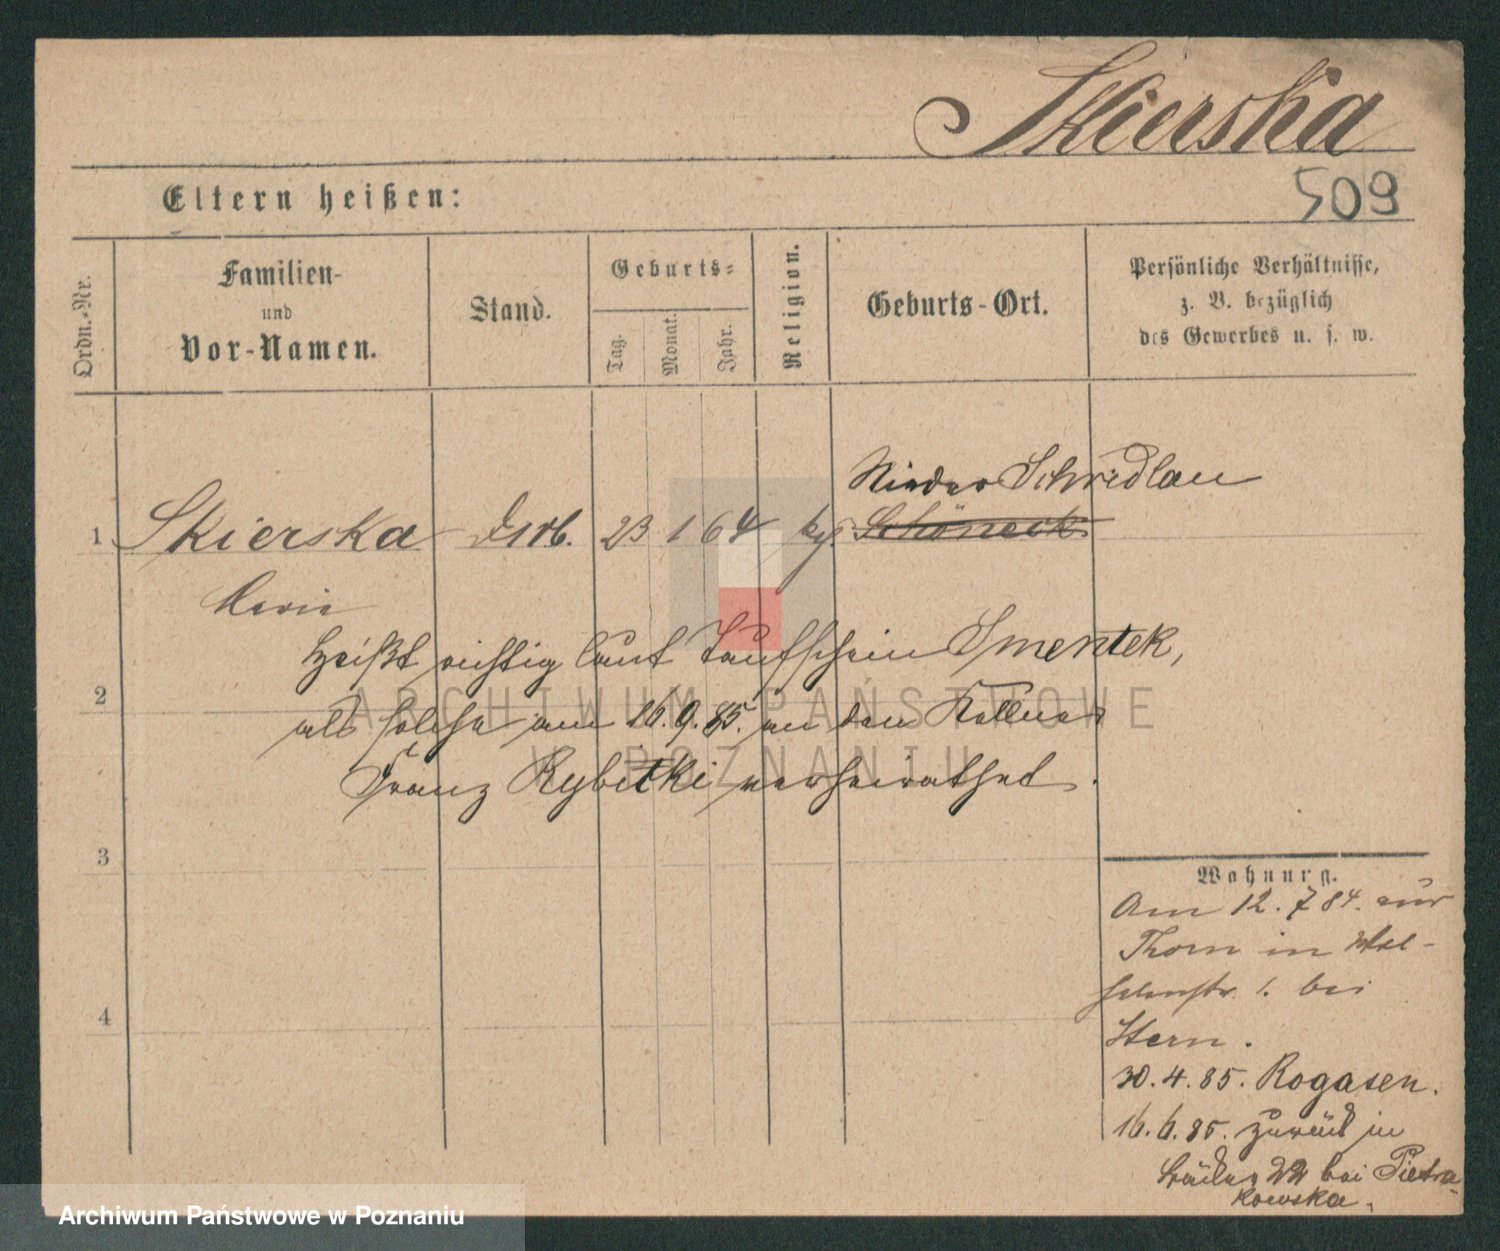 Skierska
509
Eltern heißen:
Ordn.-Nr.
Familien-
und
Vor-Namen.
Stand.
Geburts-
Tag.
Monat.
Jahr.
Religion.
Geburts-Ort.
Persönliche Verhältnisse,
z. B. bezüglich
des Gewerbes u. s. w.
Nieder Schridlau
1 Skierska 23 1 64 Schöneck
Marie
heißt richtig laut Taufschein Smentek,
2
als solche am 26.9.85. an den Kellner
Franz Rybitzki verheirathet.
3
4
Wohnung.
Am 12. 7 84. aus
Thorn in Wal-
1. bei
Stern.
30.4.85. Rogasen.
16.6.85. zurück in
22 bei Pietra-
kowska.
ARCHIWUM PAŃSTWOWE
W POZNANIU
Archiwum Państwowe w Poznaniu